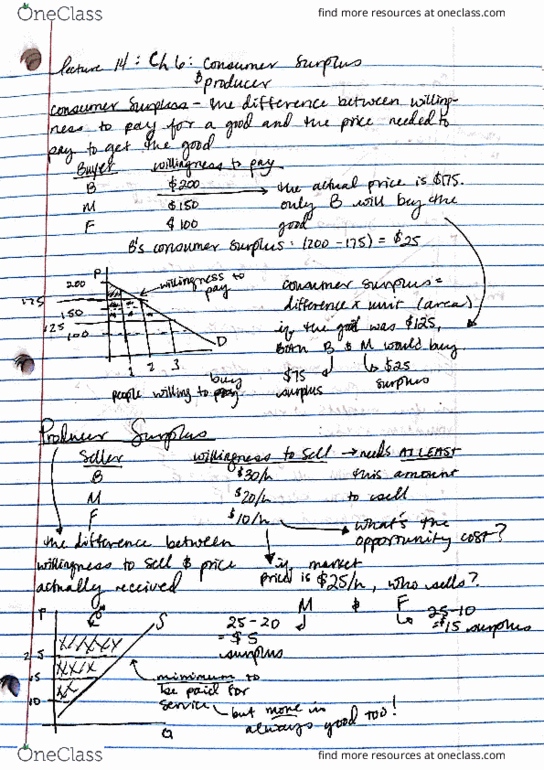 OneClass
find more resources at oneclass.com
Lecture 14: Ch 6: Consumer Surplus
$ producer
Consumer Surplus - the difference between willing-
ness to pay for a good and the price needed to
pay to get the good
Buyer willingness to pay
B $200 the actual price is $175.
M $150 only B will buy the
F $100 good
B's consumer surplus: (200-175) = $25
P
200
175
150
125
100
willingness to
pay
D
1 2 3
buy
people willing to
consumer surplus =
difference x unit (area)
if the good was $125,
Both B & M would buy
$75 $25
surplus surplus
Producer Surplus
Seller willingness to sell → needs AT LEAST
B $30/h this amount
M $20/h to sell
F $10/h what's the
opportunity cost?
the difference between
willingness to sell & price
actually received
if market
price is $25/h, who sells?
M & F
25-20
= $5
surplus
25-10
=$15 surplus
P
S
25
15
10
Q
minimum to
be paid for
service
but more is
always good too!
OneClass
find more resources at oneclass.com